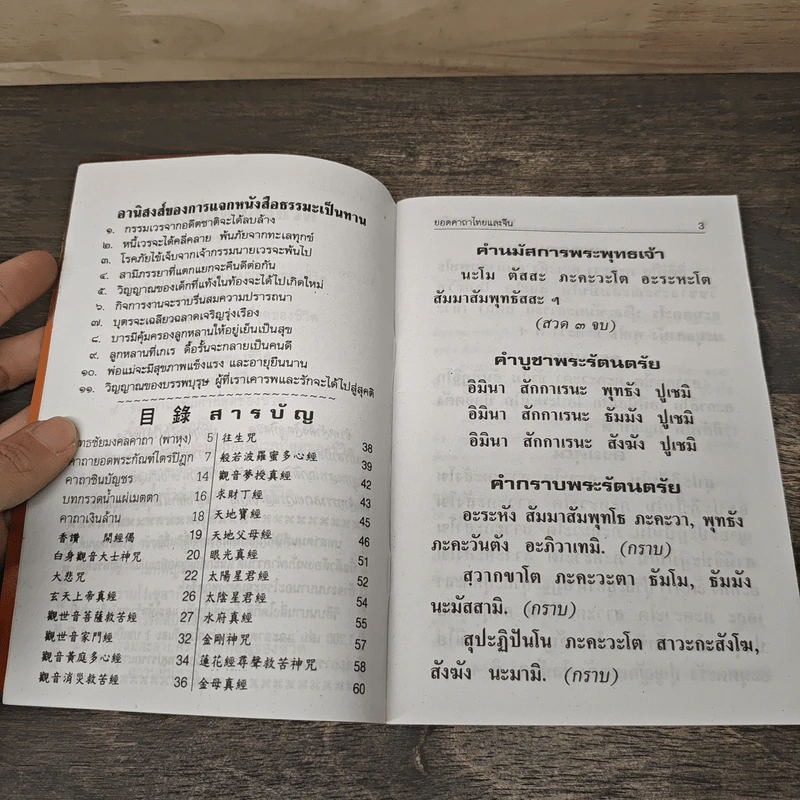 อานิสงส์ของการแจกหนังสือธรรมะเป็นทาน
๑. กรรมเวรจากอดีตชาติจะได้ลบล้าง
๒. หนี้เวรจะได้คลี่คลาย พ้นภัยจากทะเลทุกข์
๓. โรคภัยไข้เจ็บจากเจ้ากรรมนายเวรจะพ้นไป
๔. สามีภรรยาที่แตกแยกจะคืนดีต่อกัน
๕. วิญญาณของเด็กที่แท้งในท้องจะได้ไปเกิดใหม่
๖. กิจการงานจะราบรื่นสมความปรารถนา
๗. บุตรจะเฉลียวฉลาดเจริญรุ่งเรือง
๘. บารมีคุ้มครองลูกหลานให้อยู่เย็นเป็นสุข
๙. ลูกหลานที่เกเร ดื้อรั้นจะกลายเป็นคนดี
๑๐. พ่อแม่จะมีสุขภาพแข็งแรง และอายุยืนนาน
๑๑. วิญญาณของบรรพบุรุษ ผู้ที่เราเคารพและรักจะได้ไปสู่สุคติ
目錄 สารบัญ
ทธชัยมงคลคาถา (พาหุง) 5
คาถายอดพระกัณฑ์ไตรปิฎก 7
คาถาชินบัญชร 14
บทกรวดน้ำแผ่เมตตา 16
คาถาเงินล้าน 18
香讚 開經偈 19
白身觀音大士神咒 20
大悲咒 22
玄天上帝真經 26
觀世音菩薩救苦經 27
觀世音家門經 32
觀音黃庭多心經 34
觀音消災救苦經 36
往生咒 38
般若波羅蜜多心經 39
觀音夢授真經 42
求財丁經 43
天地寶經 45
天地父母經 46
眼光真經 51
太陽星君經 52
太陰星君經 54
水府真經 55
金剛神咒 57
蓮花經尋聲救苦神咒 58
金母真經 60
ยอดคาถาไทยและจีน 3
คำนมัสการพระพุทธเจ้า
นะโม ตัสสะ ภะคะวะโต อะระหะโต
สัมมาสัมพุทธัสสะ ฯ
(สวด ๓ จบ)
คำบูชาพระรัตนตรัย
อิมินา สักกาเรนะ พุทธัง ปูเชมิ
อิมินา สักกาเรนะ ธัมมัง ปูเชมิ
อิมินา สักกาเรนะ สังฆัง ปูเชมิ
คำกราบพระรัตนตรัย
อะระหัง สัมมาสัมพุทโธ ภะคะวา, พุทธัง
ภะคะวันตัง อะภิวาเทมิ. (กราบ)
สฺวากขาโต ภะคะวะตา ธัมโม, ธัมมัง
นะมัสสามิ. (กราบ)
สุปะฏิปันโน ภะคะวะโต สาวะกะสังโฆ,
สังฆัง นะมามิ. (กราบ)